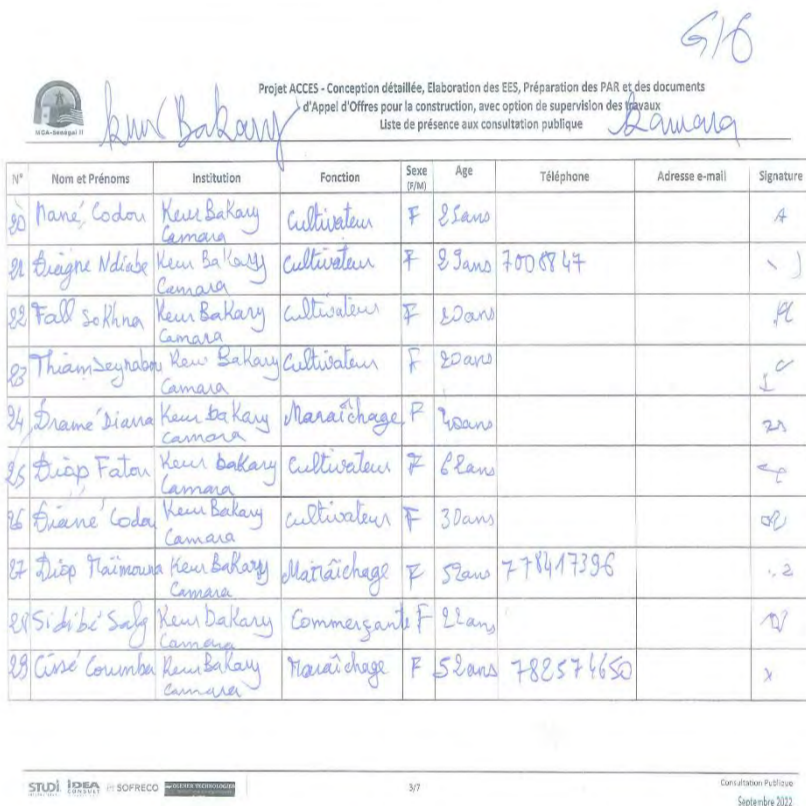 G/6
Projet ACCES - Conception détaillée, Elaboration des EES, Préparation des PAR et des documents
d'Appel d'Offres pour la construction, avec option de supervision des travaux
Liste de présence aux consultation publique
MCA-Sénégal II
Keur Bakary Kamara
N° Nom et Prénoms Institution Fonction Sexe (F/M) Age Téléphone Adresse e-mail Signature
20 Mané Codou Keur Bakary Camara Cultivateur F 25ans
21 Diagne Ndiabe Keur Bakary Camara Cultivateur F 29ans 7006847
22 Fall Sokhna Keur Bakary Camara Cultivateur F 20ans
23 Thiam Seynabou Keur Bakary Camara Cultivateur F 20ans
24 Dramé Diarra Keur bakary Camara Maraîchage F 40ans
25 Diop Fatou Keur bakary Camara Cultivateur F 62ans
26 Diané Codou Keur Bakary Camara Cultivateur F 30ans
27 Diop Maïmouna Keur Bakary Camara Maraîchage F 52ans 778417396
28 Sidibé Saly Keur Bakary Camara Commerçante F 22ans
29 Cissé Coumba Keur Bakary Camara Maraîchage F 52ans 782574650
STUDI IDEA CONSULT SOFRECO
3/7
Consultation Publique
Septembre 2022